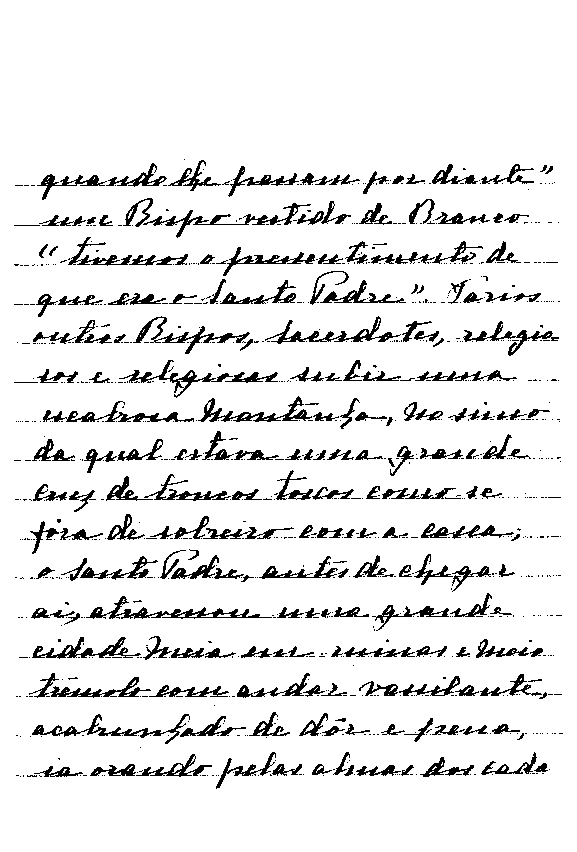 quando lhe passam por diante"
um Bispo vestido de Branco
"tivemos o pressentimento de
que era o Santo Padre". Varios
outros Bispos, sacerdotes, religio
sos e religiosas subir uma
escabrosa montanha, no simo
da qual estava uma grande
cruz de troncos toscos como se
fôra de sobreiro com a casca;
o Santo Padre, antes de chegar
aí, atravessou uma grande
cidade meia em ruinas e meio
trémulo com andar vassilante,
acabrunhado de dôr e pena,
ia orando pelas almas dos cada